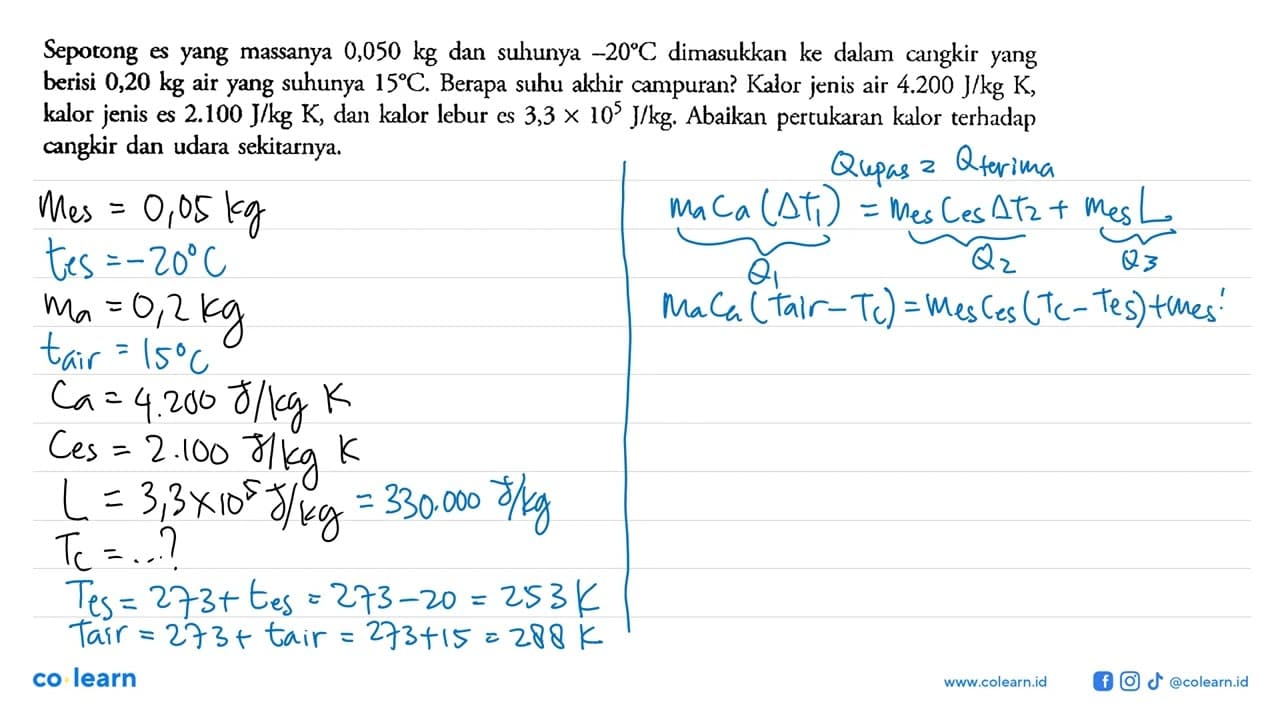 Sepotong es yang massanya 0,050 kg dan suhunya –20°C dimasukkan ke dalam cangkir yang
berisi 0,20 kg air yang suhunya 15°C. Berapa suhu akhir campuran? Kalor jenis air 4.200 J/kg K,
kalor jenis es 2.100 J/kg K, dan kalor lebur es 3,3 × 10⁵ J/kg. Abaikan pertukaran kalor terhadap
cangkir dan udara sekitarnya.
mes = 0,05 kg
tes = -20°C
ma = 0,2 kg
tair = 15°C
Ca = 4.200 J/kg K
Ces = 2.100 J/kg K
L = 3,3 × 10⁵ J/kg = 330.000 J/kg
Tc = ...?
Tes = 273 + tes = 273 - 20 = 253 K
Tair = 273 + tair = 273 + 15 = 288 K
Qlepas = Qterima
ma Ca (ΔT1) = mes Ces ΔT2 + mes L
Q1 Q2 Q3
ma Ca (Tair - Tc) = mes Ces (Tc - Tes) + mes
co learn
www.colearn.id
@colearn.id